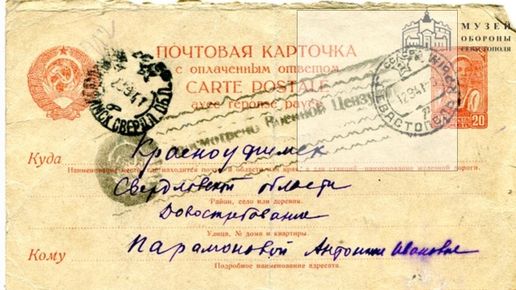 МУЗЕЙ
ОБОРОНЫ
СЕВАСТОПОЛЯ
ПОЧТОВАЯ КАРТОЧКА
с оплаченным ответом
CARTE POSTALE
avec réponse payée
20
СЕВАСТОПОЛЬ
Военной Цензурой
Куда
Красноуфимск
Наименование места, где находится почта
Свердловской области
Район, село или деревня.
Довостребование
Улица, № дома и квартиры.
Кому
Парамоновой Антонине Ивановне
Подробное наименование адресата.